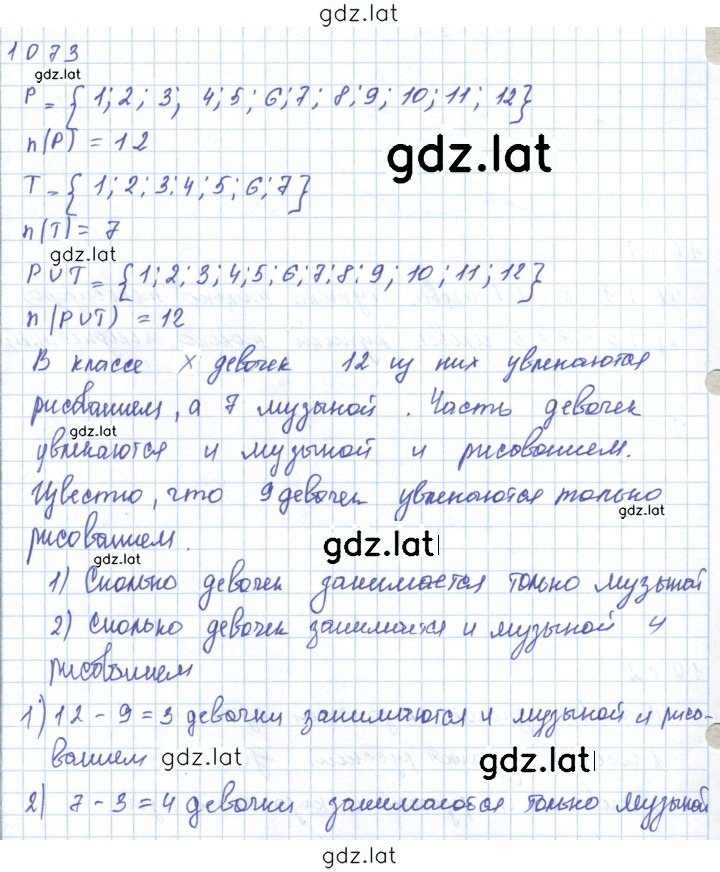 gdz.lat
1073
gdz.lat
P = { 1; 2; 3; 4; 5; 6; 7; 8; 9; 10; 11; 12}
n(P) = 12
gdz.lat
T = { 1; 2; 3; 4; 5; 6; 7}
n(T) = 7
gdz.lat
P∪T = {1; 2; 3; 4; 5; 6; 7; 8; 9; 10; 11; 12}
n(P∪T) = 12
В классе x девочек 12 из них увлекаются
рисованием, а 7 музыкой. Часть девочек
gdz.lat
увлекаются и музыкой и рисованием.
Известно, что 9 девочек увлекаются только
gdz.lat
рисованием.
gdz.lat
gdz.lat
1) Сколько девочек занимается только музыкой
2) Сколько девочек занимается и музыкой и
рисованием
1) 12 - 9 = 3 девочки занимаются и музыкой и рисо-
ванием gdz.lat
gdz.lat
2) 7 - 3 = 4 девочки занимаются только музыкой
gdz.lat